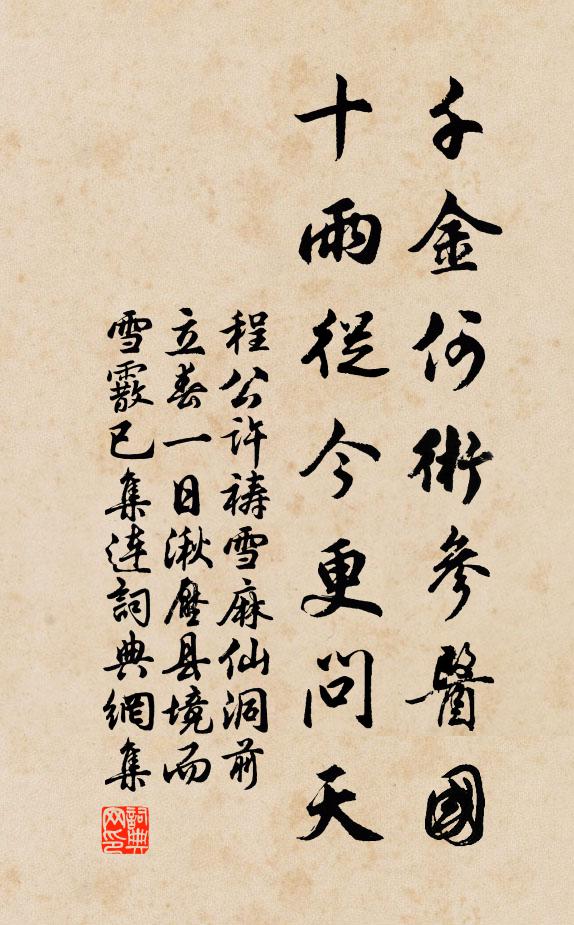 千金何術參醫國
十雨從今更問天
程公许禱雪麻仙洞前
立春一日湫歷县境而
雪霰已集连詞典網集
詞典
网印